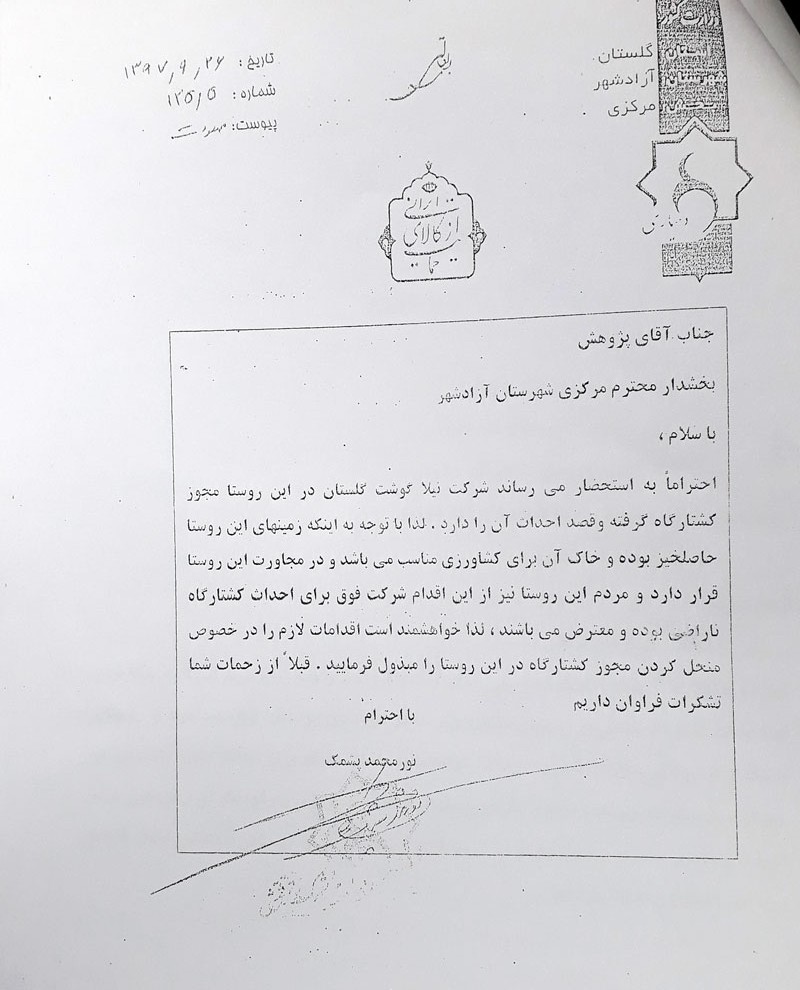 وزارت کشور
استان گلستان
شهرستان آزادشهر
بخش مرکزی
دهیاری
تاریخ: ۱۳۹۷٫۹٫۲۶
شماره:
پیوست:
حمایت
از کالای
ایرانی
جناب آقای پژوهش
بخشدار محترم مرکزی شهرستان آزادشهر
با سلام ،
احتراماً به استحضار می رساند شرکت نیلا گوشت گلستان در این روستا مجوز
کشتارگاه گرفته وقصد احداث آن را دارد . لذا با توجه به اینکه زمینهای این روستا
حاصلخیز بوده و خاک آن برای کشاورزی مناسب می باشد و در مجاورت این روستا
قرار دارد و مردم این روستا نیز از این اقدام شرکت فوق برای احداث کشتارگاه
ناراضی بوده و معترض می باشند ، لذا خواهشمند است اقدامات لازم را در خصوص
منحل کردن مجوز کشتارگاه در این روستا را مبذول فرمایید . قبلاً از زحمات شما
تشکرات فراوان داریم
با احترام
نورمحمد پشمک